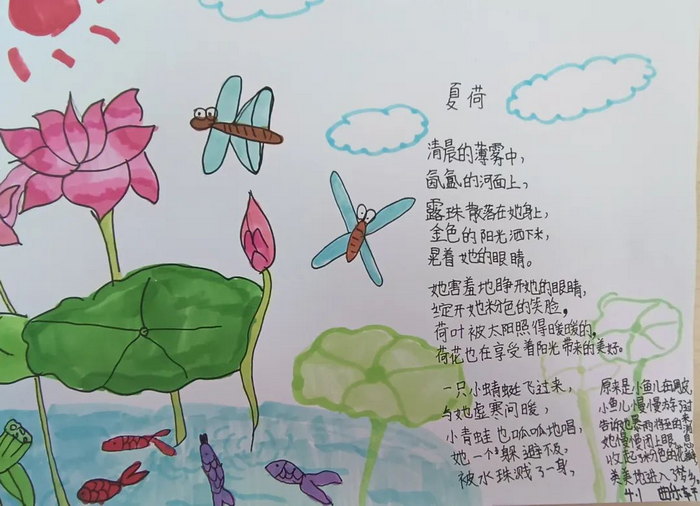 夏荷
清晨的薄雾中，
氤氲的河面上，
露珠散落在她身上，
金色的阳光洒下来，
晃着她的眼睛。
她害羞地睁开她的眼睛，
绽开她粉色的笑脸。
荷叶被太阳照得暖暖的。
荷花也在享受着阳光带来的美好。
一只小蜻蜓飞过来，
与她虚寒问暖，
小青蛙也呱呱地唱，
她一个躲避不及，
被水珠溅了一身，
原来是小鱼儿在
小鱼儿慢慢游了过
告诉她
她慢慢闭上眼
收起粉色的花瓣
美美地进入了梦乡